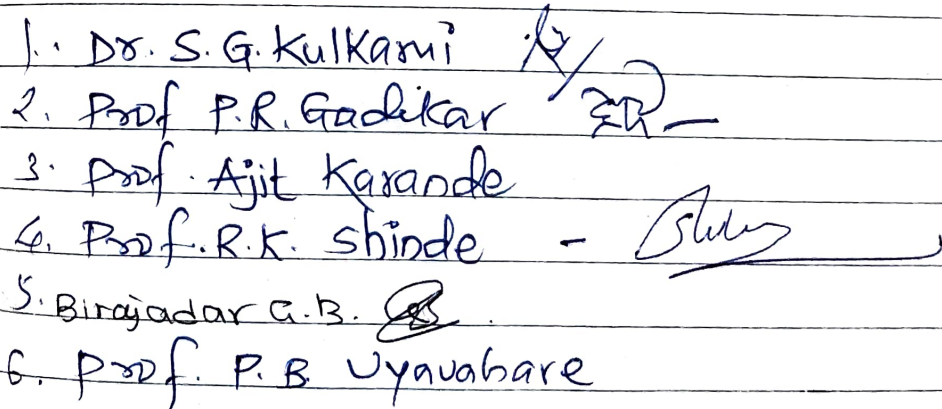 1. Dr. S. G. Kulkarni
2. Prof P. R. Gadikar
3. Prof. Ajit Karande
4. Prof. R. K. Shinde -
5. Birajadar G. B.
6. Prof. P. B. Vyavahare